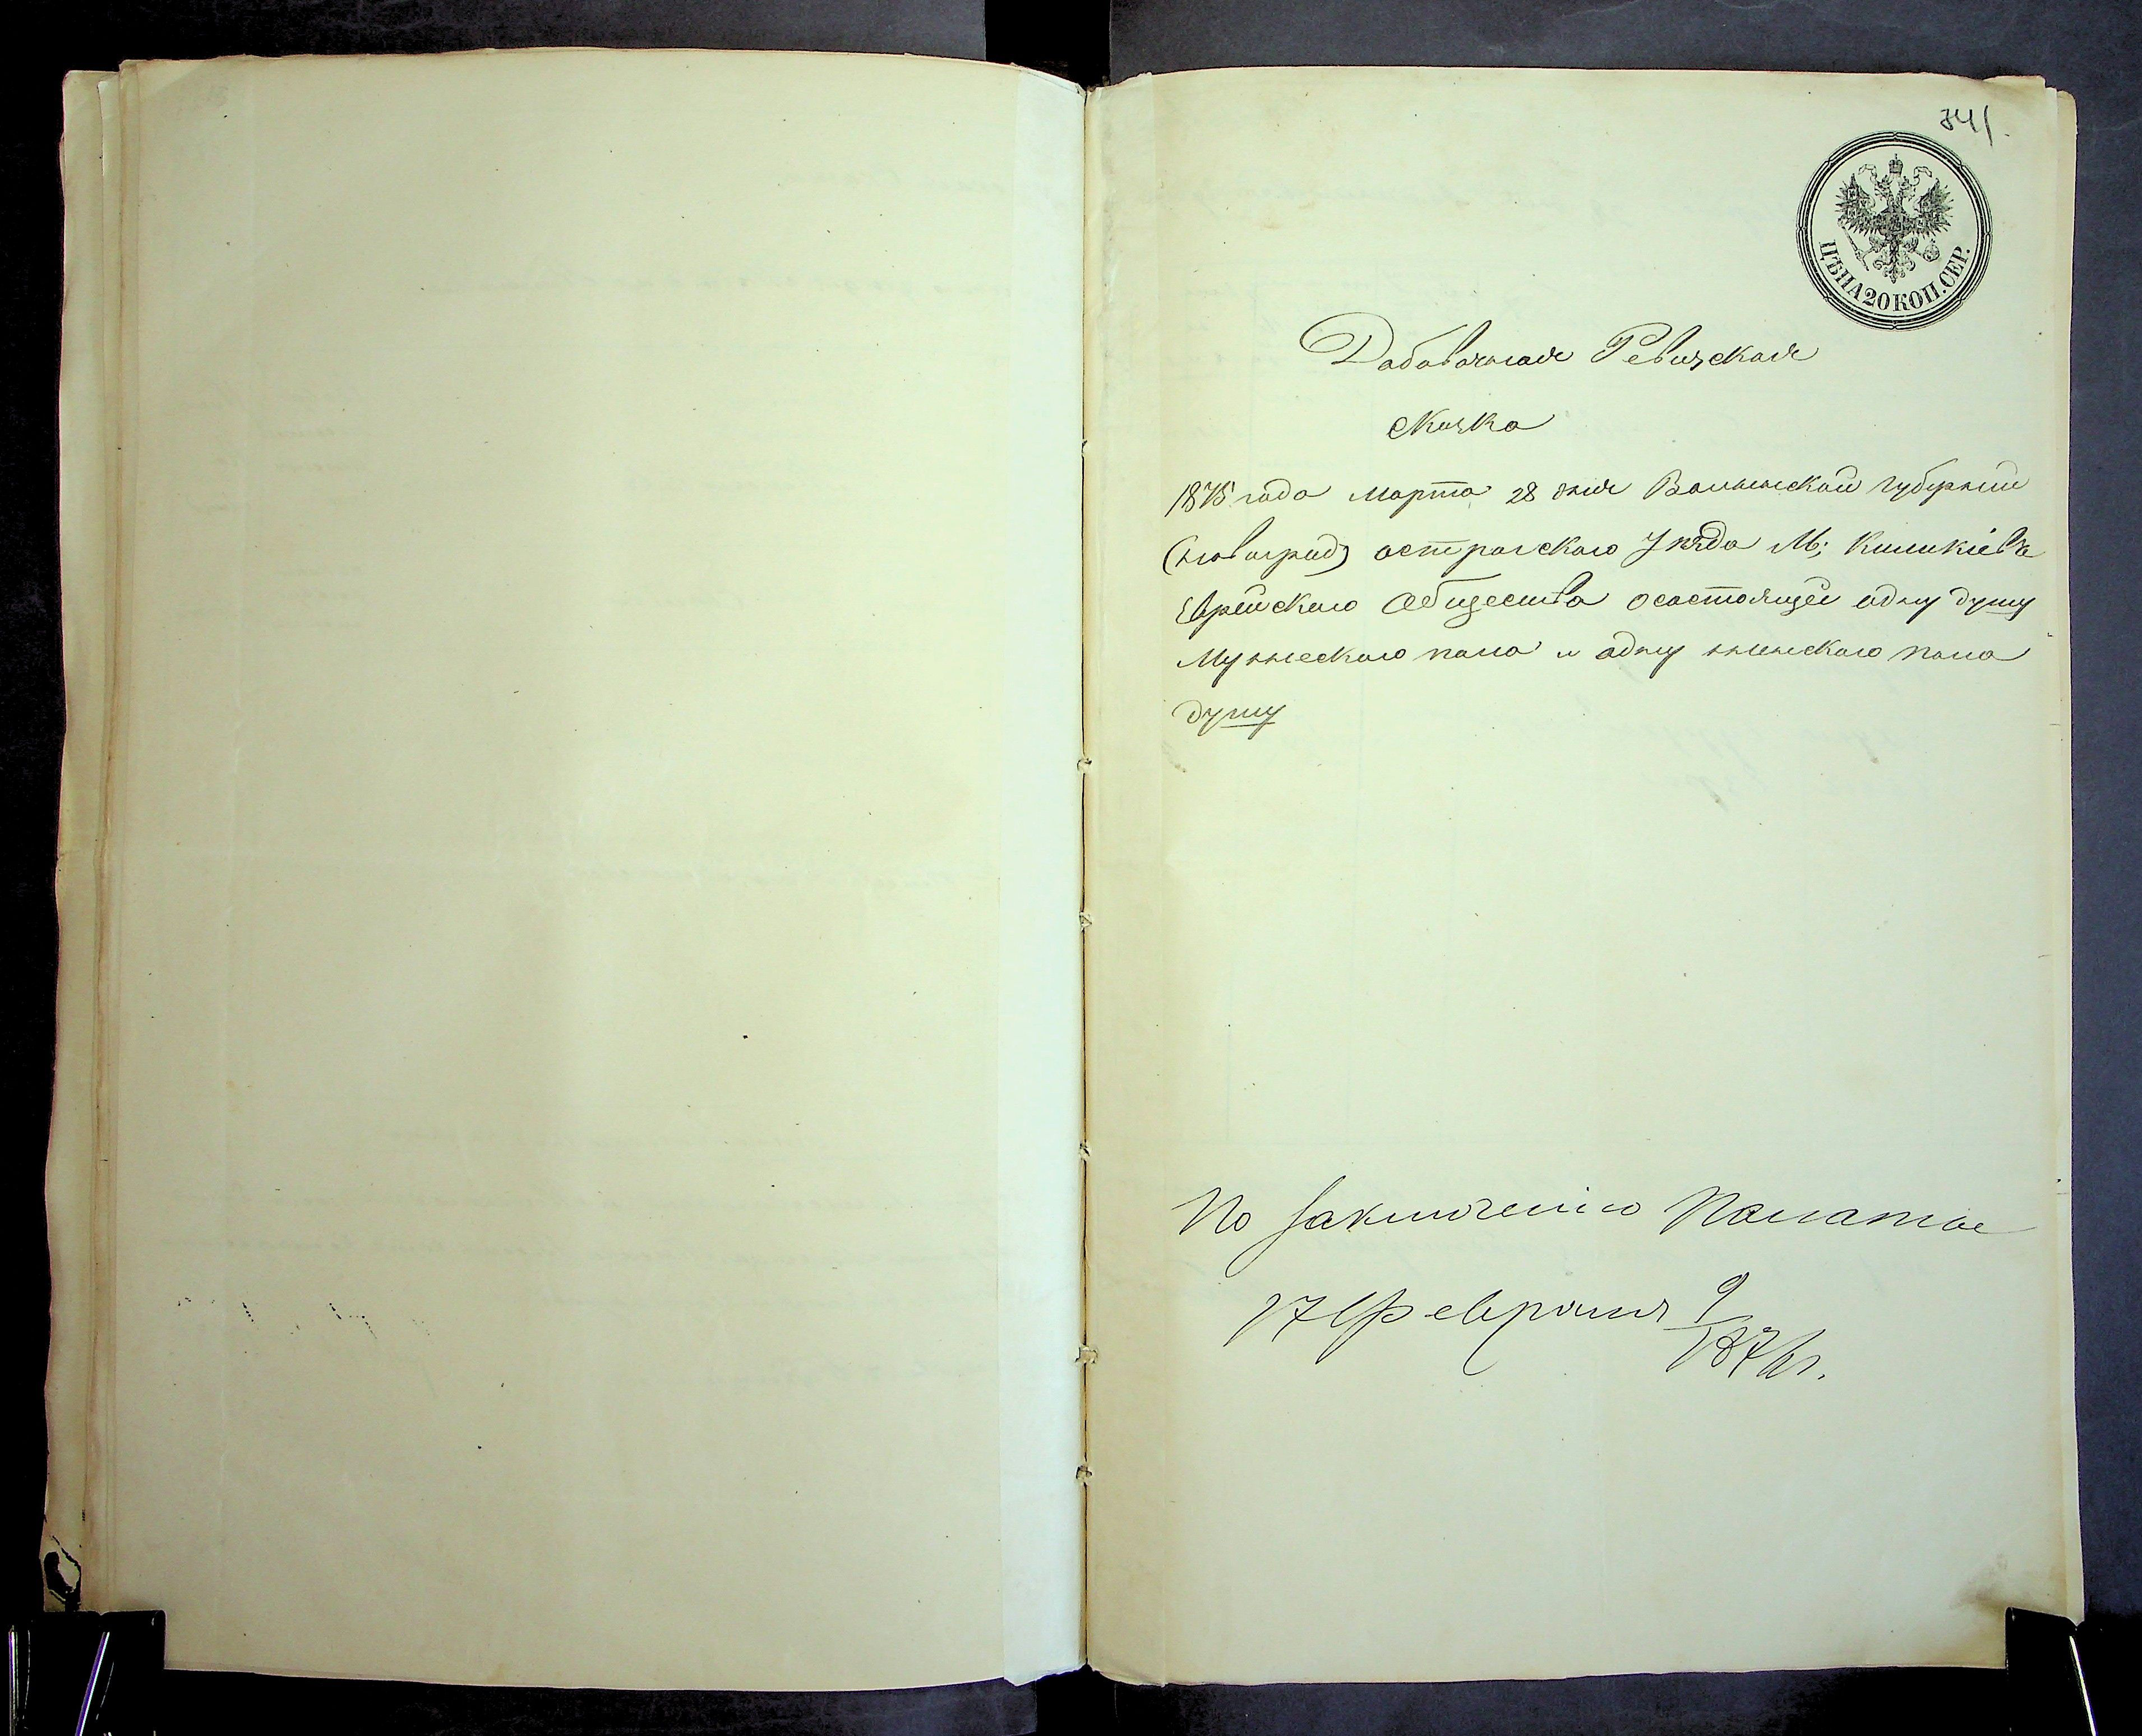 841
ЦѢНА 20 КОП. СЕР.
Добавочная Ревизская
скозка
1875 года марта 28 дня Волынской губернии
(новоград) острогского Уезда М; Киликіевъ
Еврейского Общества осостоящей одну душу
Мужеского пола и одну женского пола
душу
По заключенію Палаты
17 Февраля 9/1876 г.